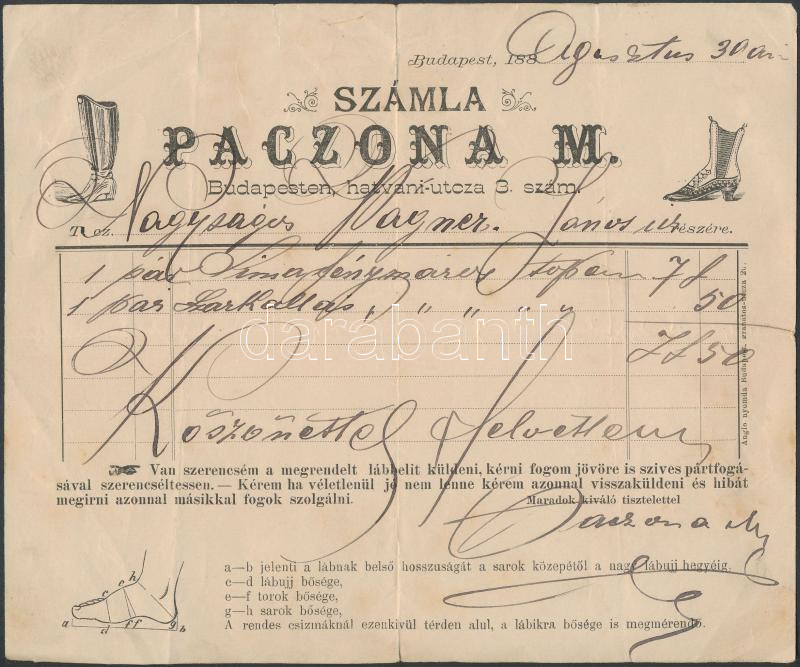 Budapest, 188 Agusztus 30án
SZÁMLA
PACZONA M.
Budapesten, hatvani-utcza 3. szám.
Nagyságos Vagner János úr részére.
1 pár Sima fénymázos 7 f
1 par Sarkallas " " " " " 50
7 f 50
Köszönettel felvettem
Van szerencsém a megrendelt lábbelit küldeni, kérni fogom jövöre is szives pártfogá-
sával szerencséltessen. — Kérem ha véletlenül jó nem lenne kérem azonnal visszaküldeni és hibát
megirni azonnal másikkal fogok szolgálni.
Maradok kiváló tisztelettel
Paczona M
a—b jelenti a lábnak belső hosszuságát a sarok közepétől a nagy lábujj hegyéig.
c—d lábujj bősége,
e—f torok bősége,
g—h sarok bősége,
A rendes csizmáknál ezenkivül térden alul, a lábikra bősége is megmérendő.
a d c e f f h g b
Anglo nyomda Budapest, granatos-utcza
darabanth